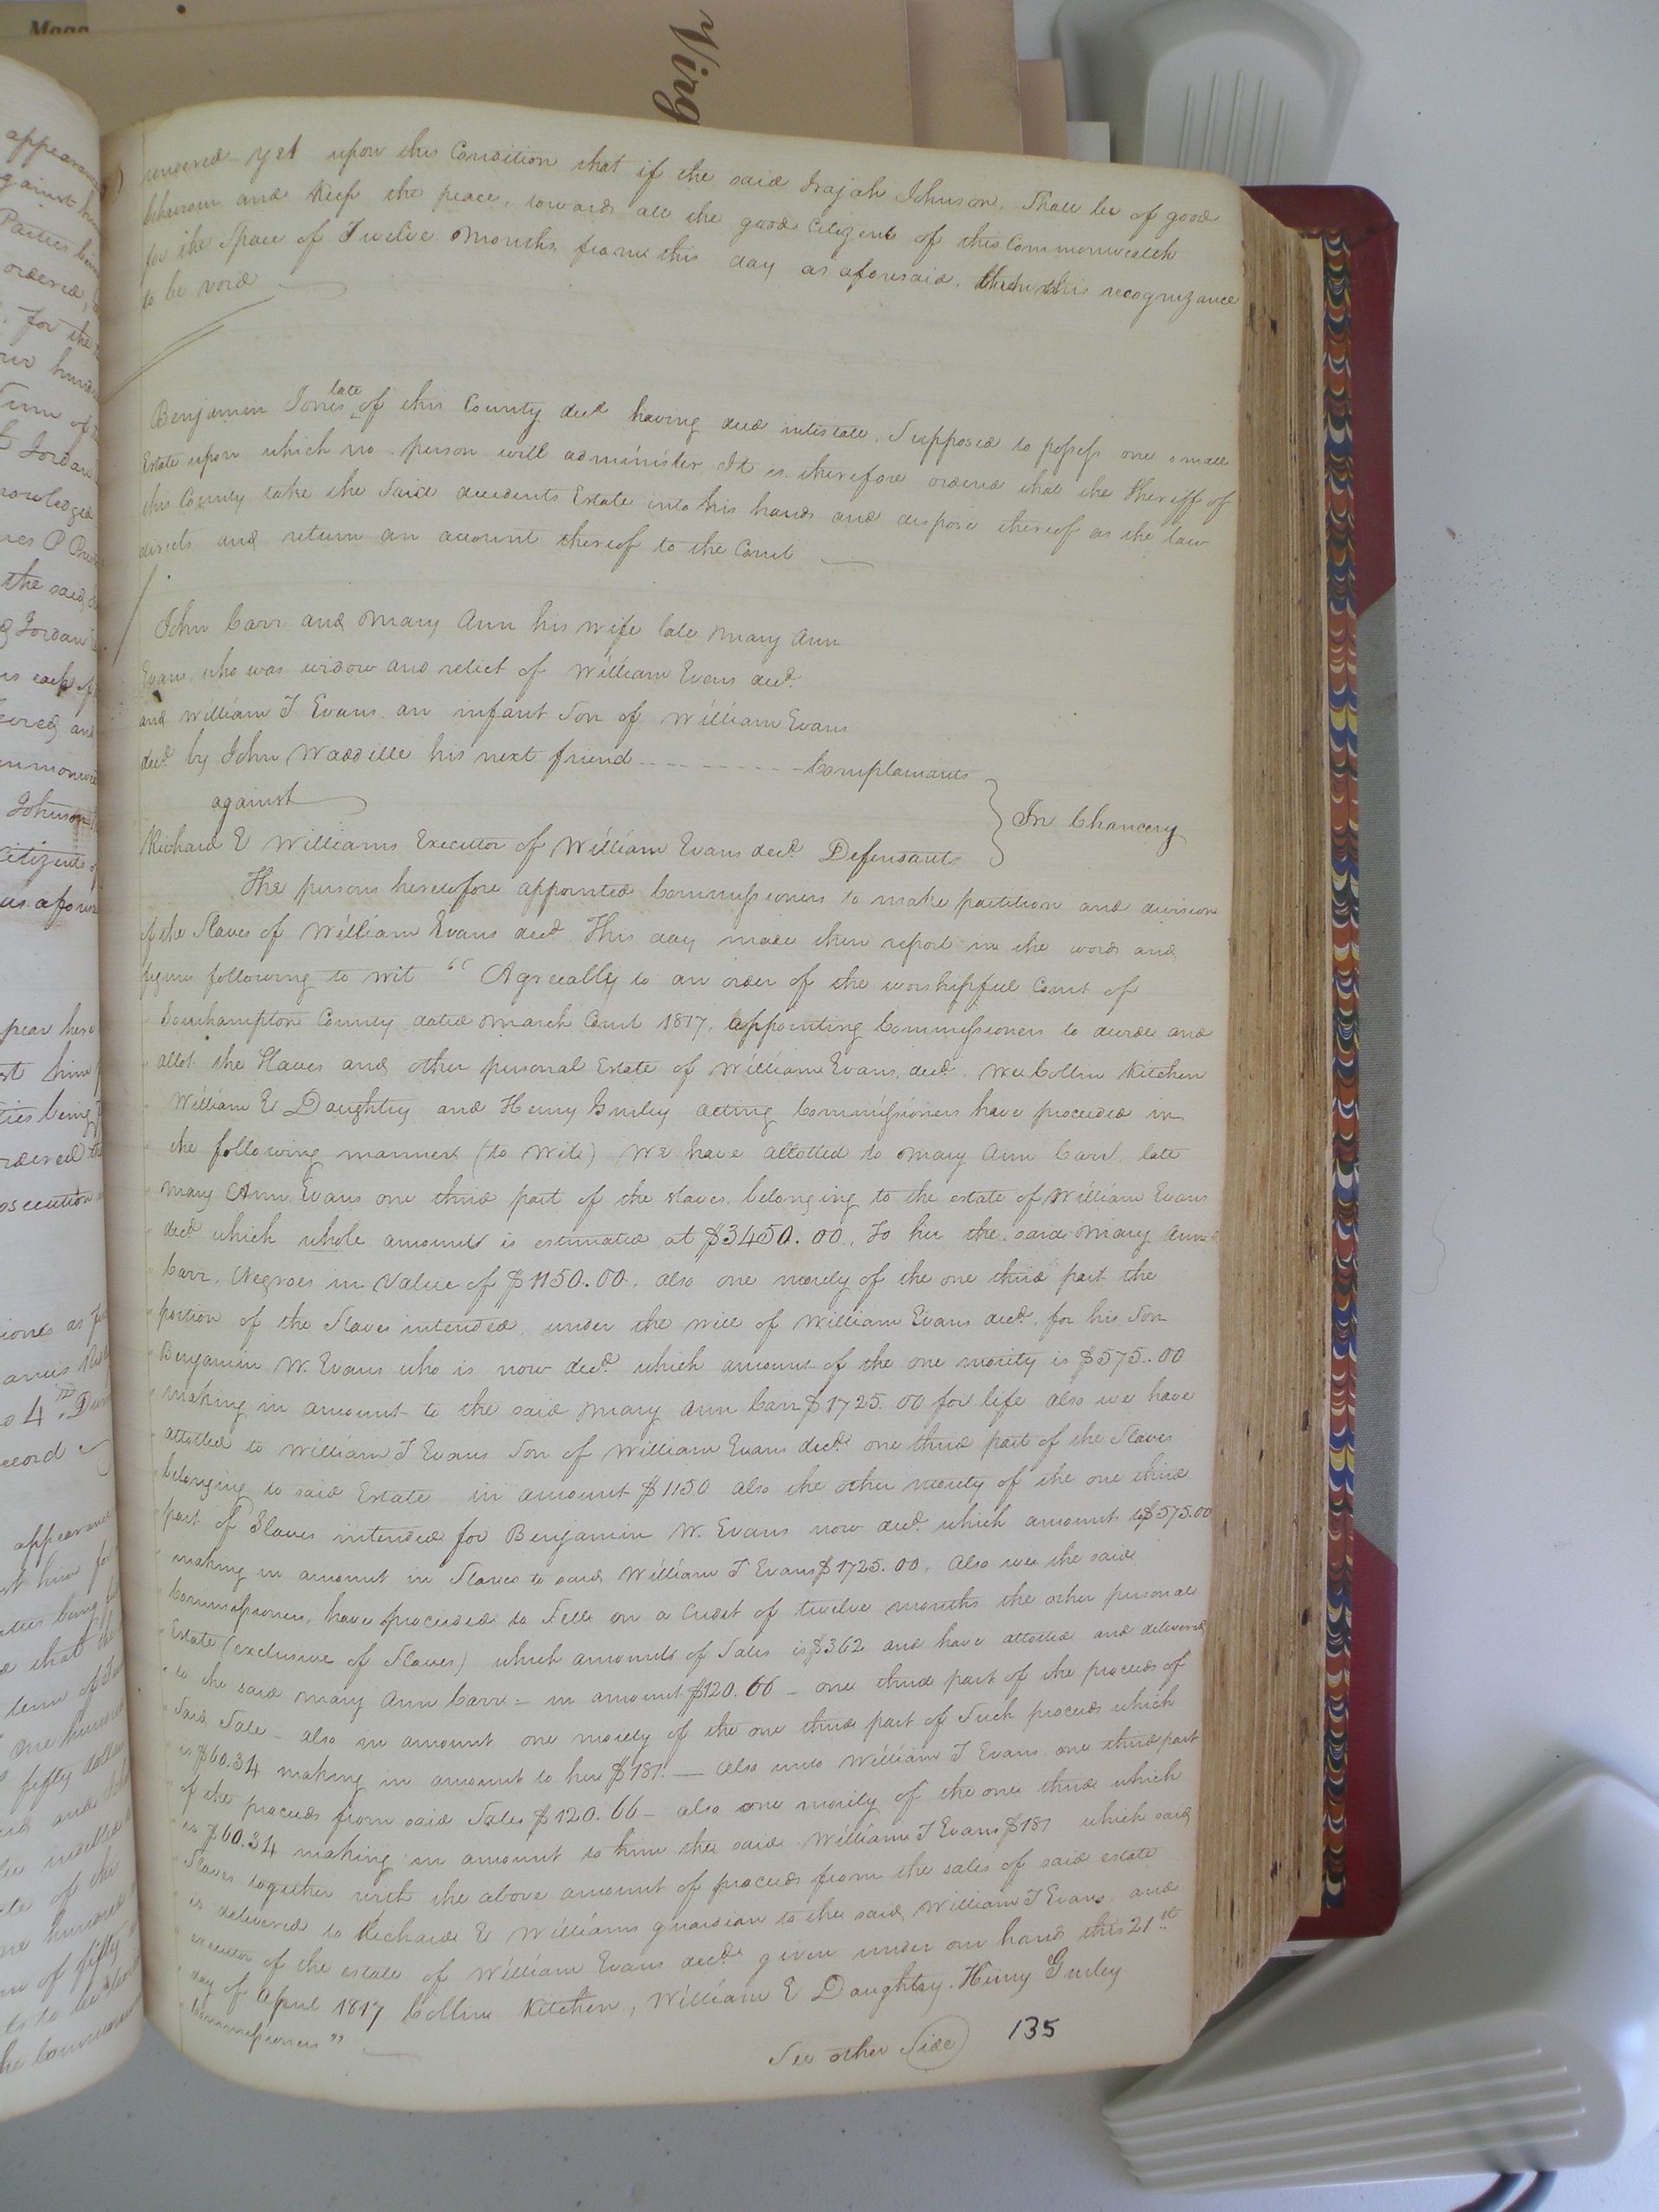 Maga
Virg
rendered yet upon this Condition that if the said Irajah Johnson. Shall be of good
behaviour and Keep the peace, towards all the good Citizens of this Commonwealth
for the Space of Twelve Months from this day as aforesaid. then this recognizance
to be void
Benjamin Jones late of this County decd having died intestate. Supposed to possess one small
Estate upon which no person will administer It is therefore ordered that the Sheriff of
this County take the Said decedents Estate into his hands and dispose thereof as the law
directs and return an account thereof to the Court
John Carr and Mary Ann his wife late Mary Ann
Evans, who was widow and relict of William Evans decd.
and William T Evans an infant Son of William Evans
decd. by John Waddille his next friend ---------- Complainants
against
Richard E Williams Executor of William Evans decd. Defendants
In Chancery
The persons heretofore appointed Commissioners to make partition and division
of the Slaves of William Evans decd. This day made their report in the words and
figures following to wit "Agreeally to an order of the worshipful Court of
Southampton County dated March Court 1817, appointing Commissioners to divide and
allot the Slaves and other personal Estate of William Evans, decd. We Collin Kitchen
William E Daughtry and Henry Gurley acting Commissioners have proceeded in
the following manner (to wit) We have allotted to Mary Ann Carr late
Mary Ann Evans one third part of the slaves, belonging to the estate of William Evans
decd which whole amount is estimated at $3450.00, To her the said Mary Ann
Carr, Negroes in Value of $1150.00. also one moiety of the one third part the
portion of the Slaves intended under the will of William Evans decd. for his Son
Benjamin W. Evans who is now decd. which amount of the one moiety is $575.00
making in amount to the said Mary Ann Carr $1725.00 for life also we have
allotted to William T Evans Son of William Evans decd. one third part of the Slaves
belonging to said Estate in amount $1150 also the other moiety of the one third
part of Slaves intended for Benjamin W. Evans now decd. which amount is $575.00
making in amount in Slaves to said William T Evans $1725.00. Also we the said
Commissioners, have proceeded to Sell on a Credit of twelve months the other personal
Estate (exclusive of Slaves) which amounts of Sales is $362 and have allotted and delivered
to the said Mary Ann Carr - in amount $120.66 - one third part of the proceeds of
Said Sale - also in amount one moiety of the one third part of Such proceeds which
is $60.34 making in amount to her $181. — Also unto William T Evans one third part
of the proceeds from said Sales $120.66 - also one moiety of the one third which
is $60.34 making in amount to him the said William T Evans $181 which said
Slaves together with the above amount of proceeds from the sales of said estate
is delivered to Richard E Williams guardian to the said William T Evans and
executor of the estate of William Evans decd. given under our hand this 21st
day of April 1817 Collin Kitchen, William E Daughtry. Henry Gurley
Commissioners"
See other Side
135